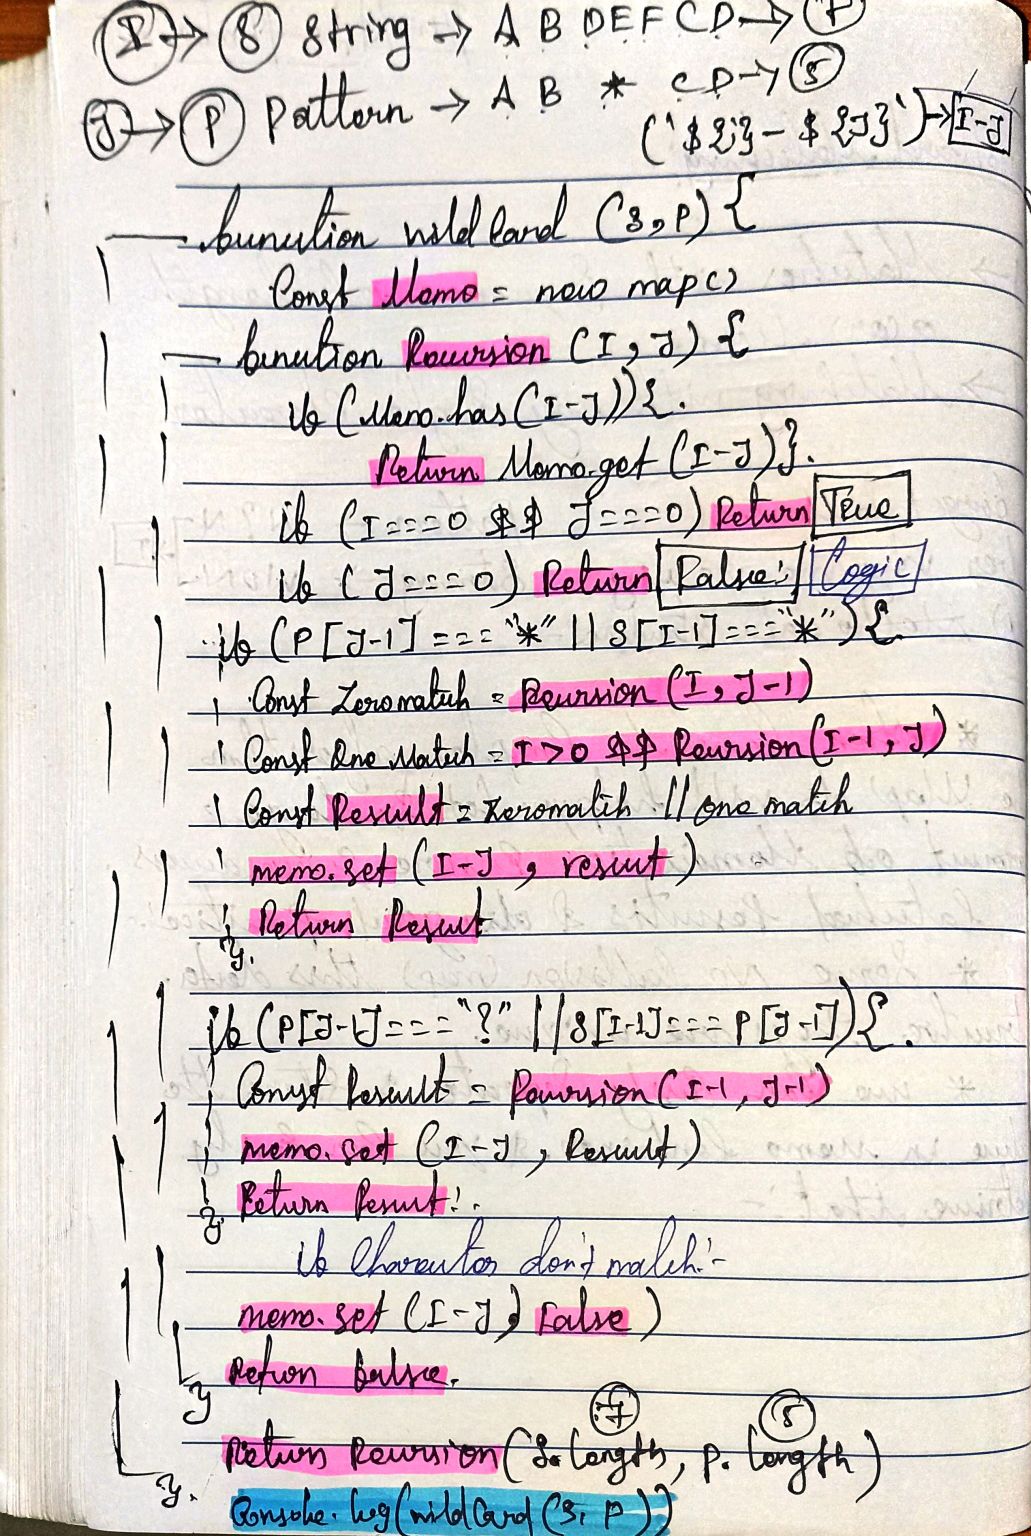 I → S String → A B D E F C D → 7
J → P Pattern → A B * C D → 5
(`${i}-${J}`) → I-J
function wildCard (S, P) {
Const Memo = new map()
function Recursion (I, J) {
if (Memo.has(I-J)) {.
Return Memo.get (I-J)}.
if (I===0 && J===0) Return True
if (J===0) Return False: Logic
if (P[J-1] === "*" || S[I-1]==="*") {
Const Zeromatch = Recursion (I, J-1)
Const One Match = I>0 && Recursion (I-1, J)
Const Result = Zeromatch || one match
memo.set (I-J, result)
Return Result
}.
if (P[J-1]==="?" || S[I-1]=== P[J-1]) {.
Const Result = Recursion (I-1, J-1)
memo.set (I-J, Result)
Return Result:.
}
if Character don't match:-
memo.set (I-J, False)
Return false.
}
7 5
Return Recursion (S.length, p.length)
}.
Console.log(wildCard (S, P))